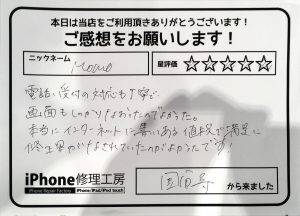 本日は当店をご利用頂きありがとうございます!
ご感想をお願いします!
ニックネーム
Momo
星評価 ☆☆☆☆☆
電話受付の対応も丁寧で、
画面もしっかりなおったのでよかった。
本当にインターネットに書いてある値段で満足に
修理がなされていたのがよかったです!
iPhone修理工房
iPhone Repair Factory iPhone/iPad/iPod touch
国分寺 から来ました